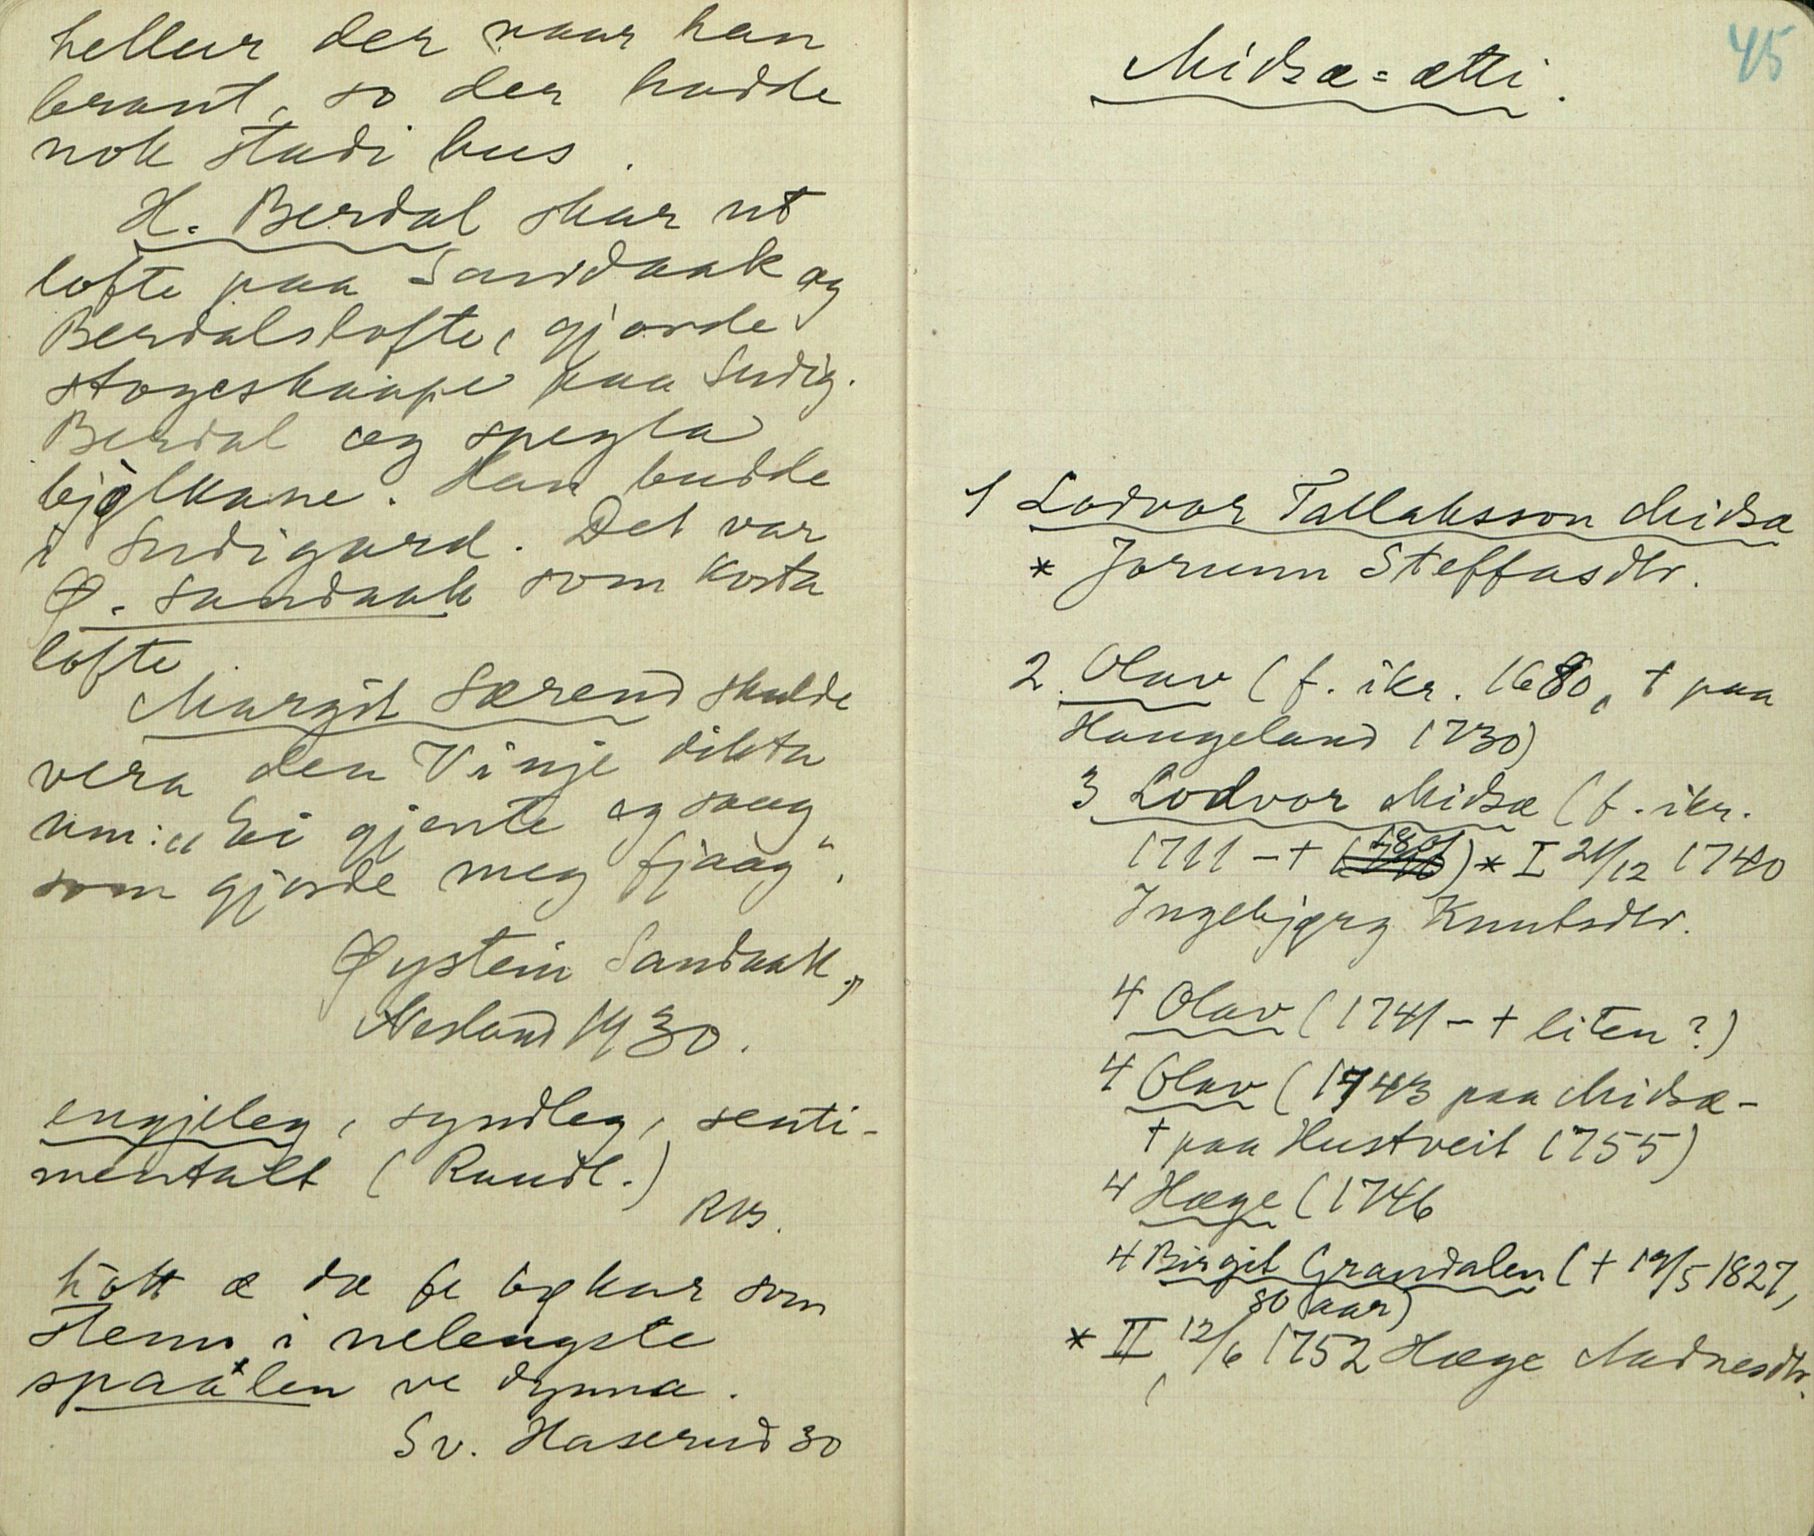 hellur der naar han
brant, so der hadde
nok stadi hus.
H. Berdal skar ut
lofte paa Sandaak og
Berdalslofte, gjorde
stogeskaape paa Sudig.
Berdal og spegla
bjølkane. Han budde
i Sudigard. Det var
Ø. Sandaak som kosta
lofte
Margit Særend skulde
vera den Vinje dikta
um: „Ei gjente eg saag
som gjorde meg fjaag“.
Øystein Sandaak,
Nesland 1930.
engjeleg, syndleg, senti-
mentalt (Raudl.)
RB.
hott æ dæ fe bøkar som
stenn i nelengste
spaalen ve dynna.
Sv. Haserud 30
45
Midbæ=ætti.
1 Lodvor Tallaksson Midbæ
* Jorunn Steffasdtr.
2 Olav (f. ikr. 1680, † paa
Haugeland 1730)
3 Lodvor Midbæ (f. ikr.
1711 – † ) * I 21/12 1740
Ingebjørg Knutsdtr.
4 Olav (1741 – † liten?)
4 Olav (1743 paa Midbæ –
† paa Hustveit 1755)
4 Hæge (1746
4 Birgit Grandalen († 19/5 1827,
80 aar)
* II 12/6 1752 Hæge Aadnesdtr.
(